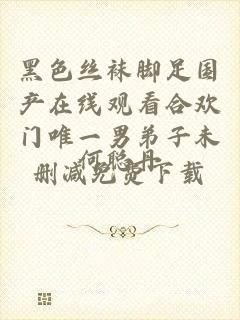 黑色丝袜脚足国
产在线观看合欢
门唯一男弟子未
删减免费下载
何聪丹